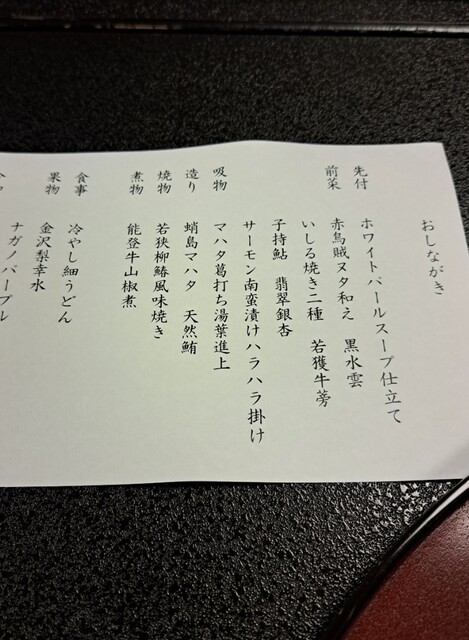 おしながき
先付 ホワイトパールスープ仕立て
前菜 赤烏賊ヌタ和え 黒水雲
いしる焼き二種 若獲牛蒡
子持鮎 翡翠銀杏
サーモン南蛮漬けハラハラ掛け
吸物 マハタ葛打ち湯葉進上
造り 蛸島マハタ 天然鮪
焼物 若狭柳鰆風味焼き
煮物 能登牛山椒煮
食事 冷やし細うどん
果物 金沢梨幸水
ナガノパープル